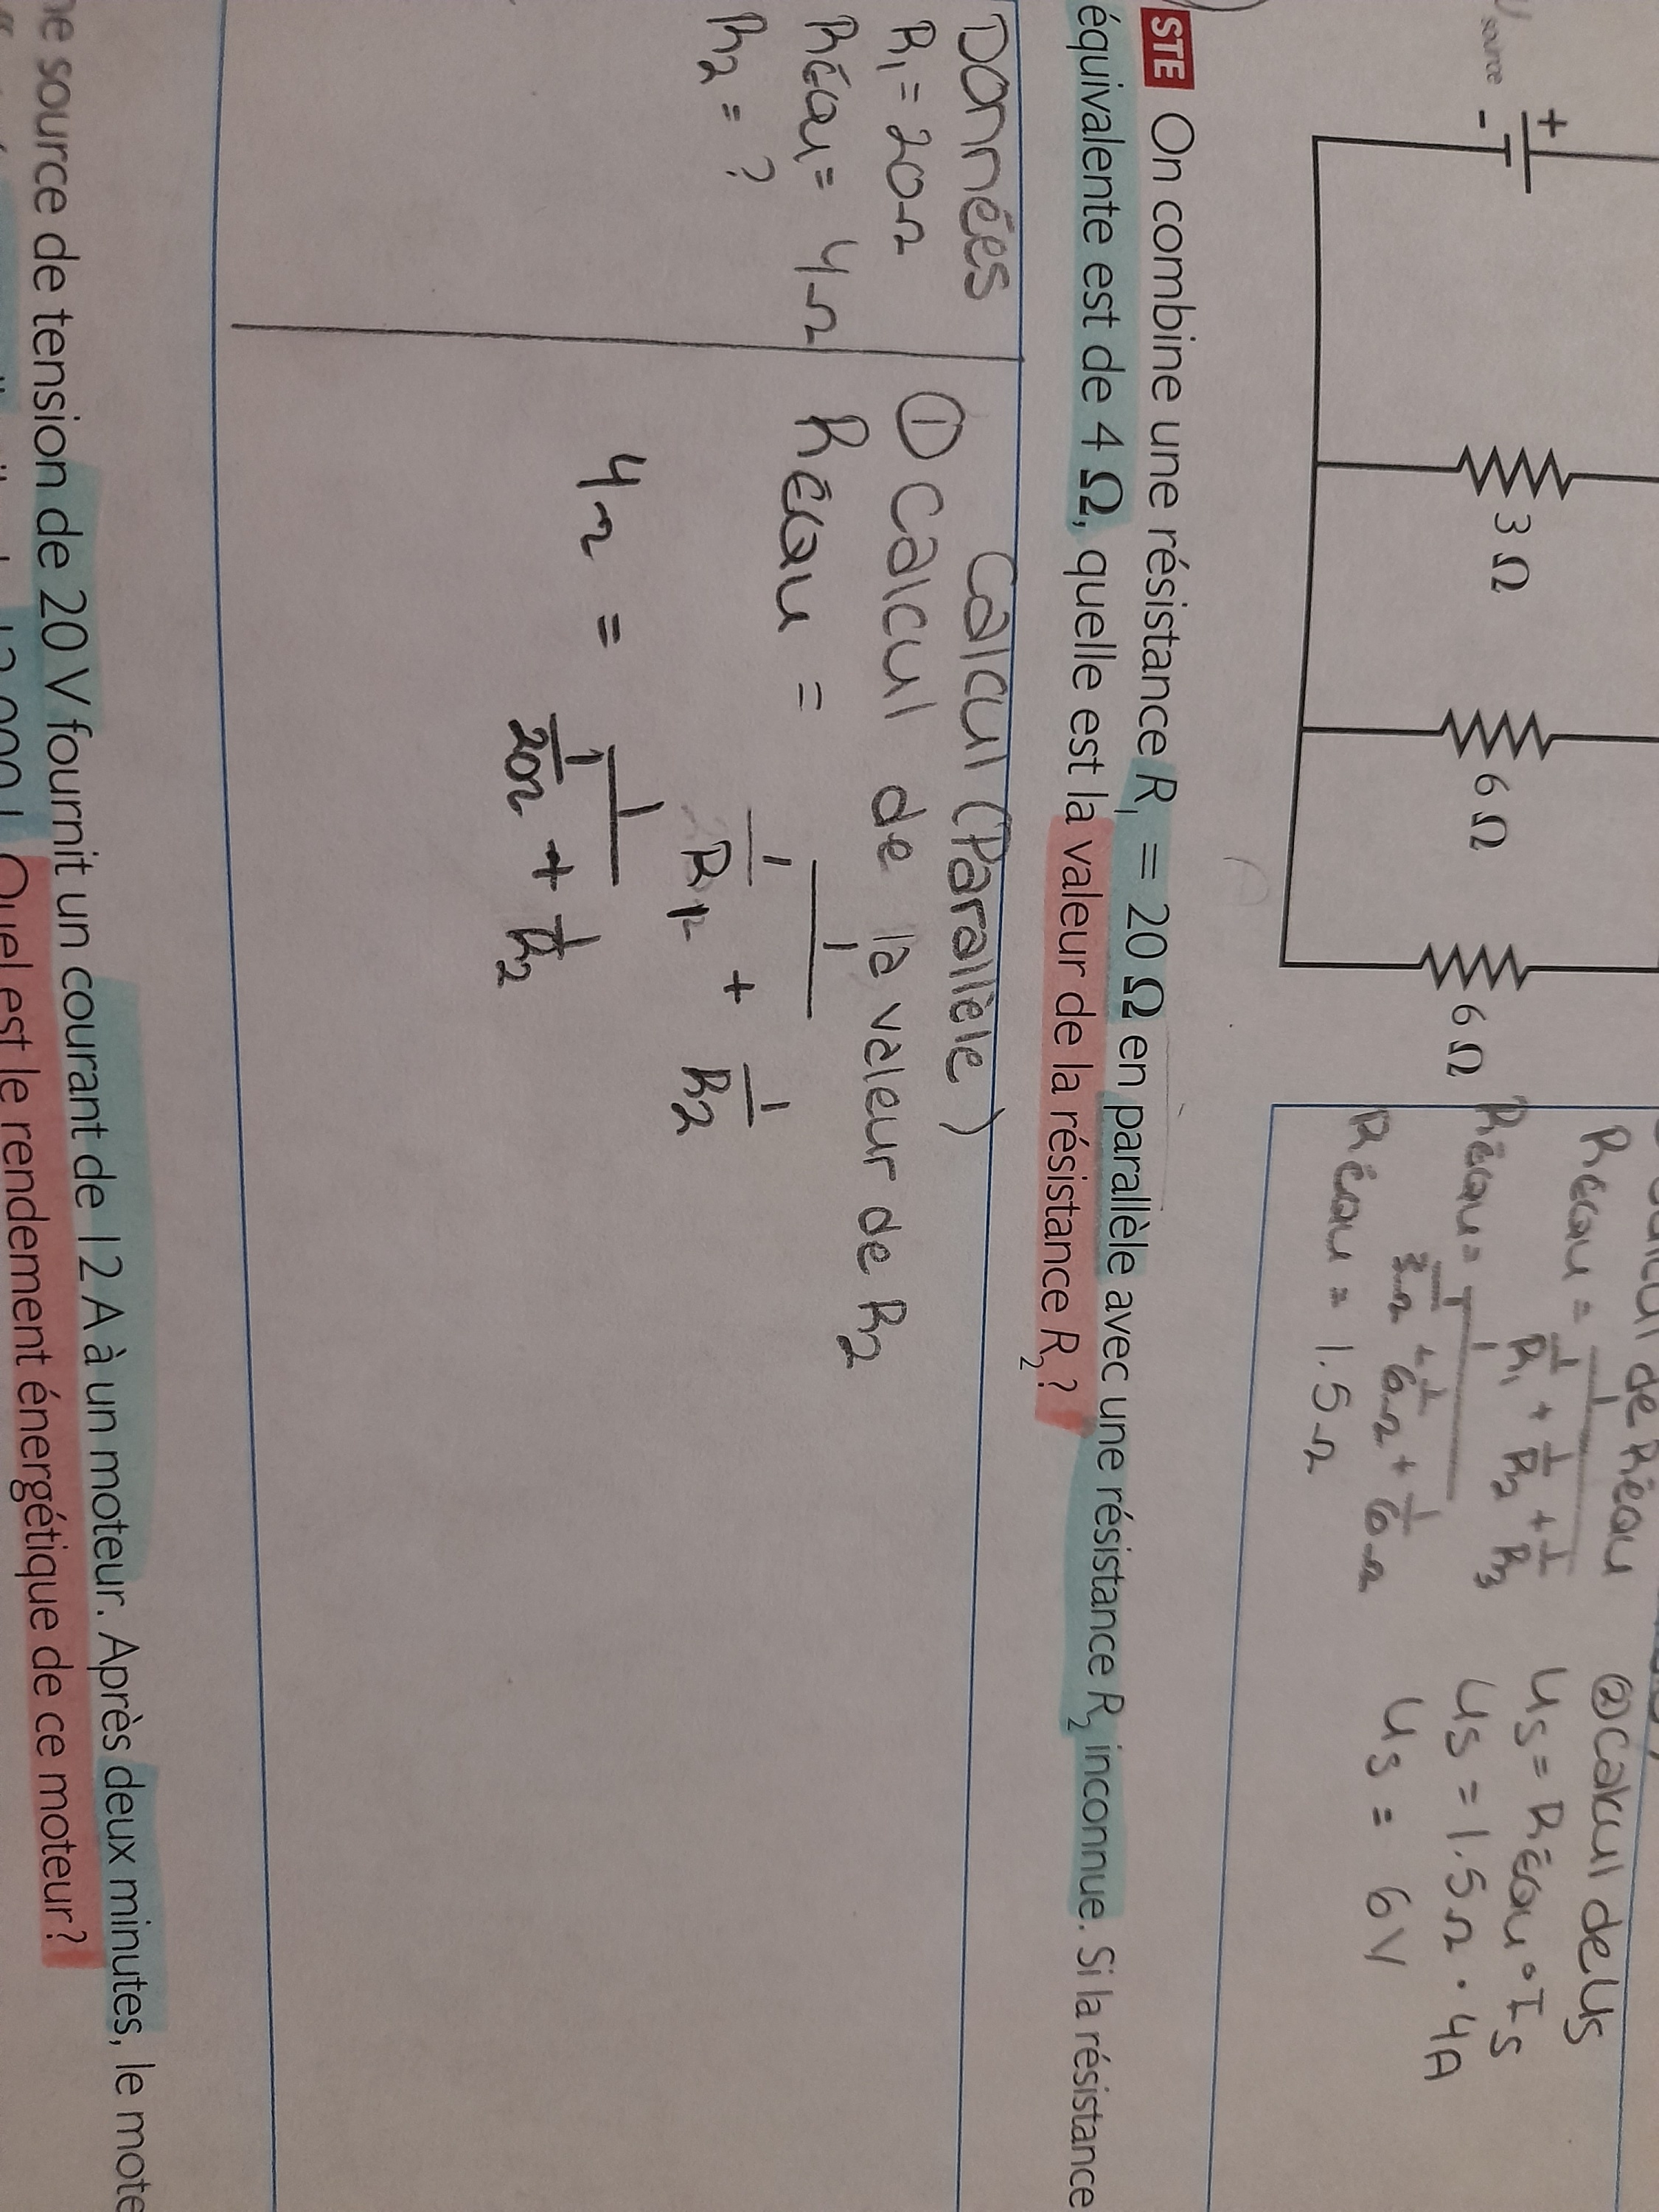 source
+
-
3 Ω
6 Ω
6 Ω
de Réqu
Réqu = 1
1/R1 + 1/R2 + 1/R3
Réqu = 1
1/3Ω + 1/6Ω + 1/6Ω
Réqu = 1.5Ω
② Calcul de Us
Us = Réqu • Is
Us = 1.5Ω · 4A
Us = 6V
STE On combine une résistance R1 = 20 Ω en parallèle avec une résistance R2 inconnue. Si la résistance
équivalente est de 4 Ω, quelle est la valeur de la résistance R2 ?
Données
R1 = 20Ω
Réqu = 4Ω
R2 = ?
Calcul (Parallèle)
① Calcul de la valeur de R2
Réqu = 1
1/R1 + 1/R2
4Ω = 1
1/20Ω + 1/R2
source de tension de 20 V fournit un courant de 12 A à un moteur. Après deux minutes, le
Quel est le rendement énergétique de ce moteur?